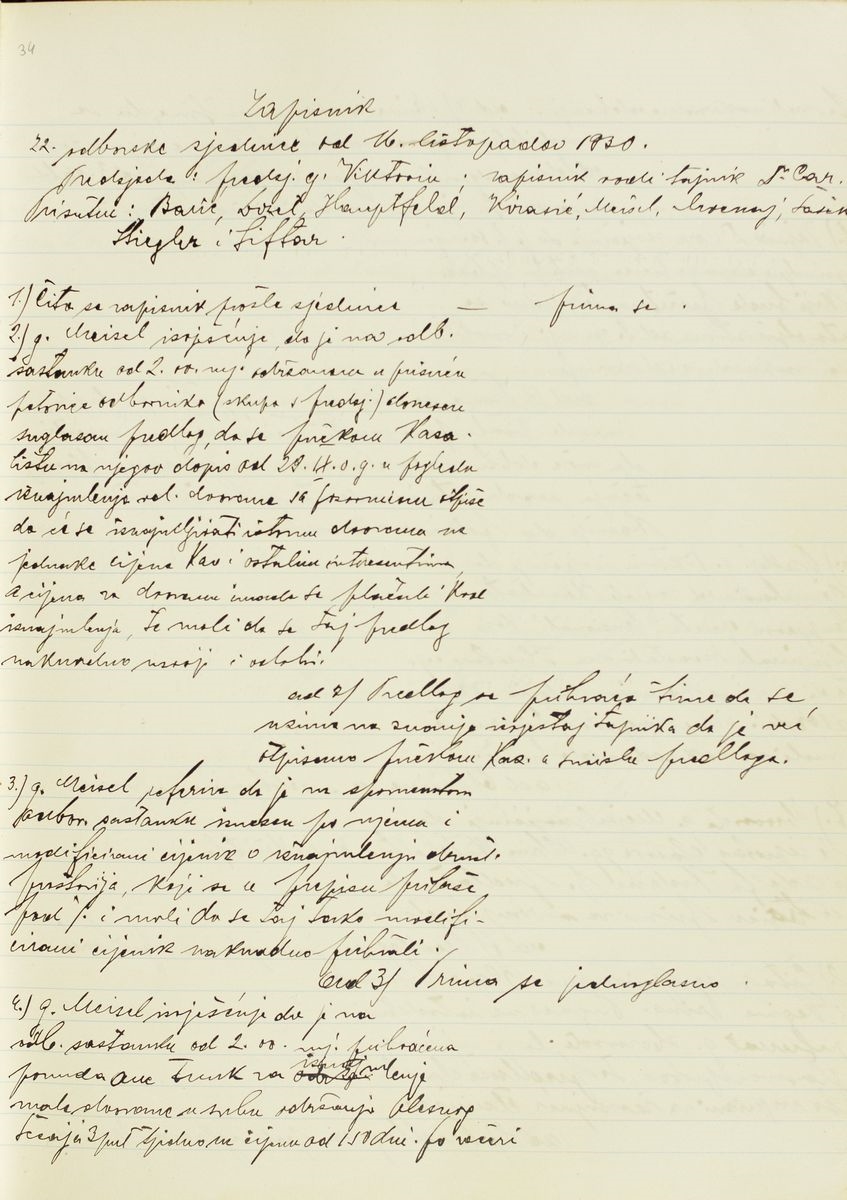 34
Zapisnik
22. odborske sjednice od 16. listopada 1930.
Predsjeda: predsj. g. Viktorin; zapisnik vodi tajnik Dr Car.
Prisutni: Barić, Hauptfeld, Kirasić, Meisel,
Stiegler i Šiftar.
1.) Čita se zapisnik prošle sjednice — prima se.
2.) g. Meisel izvješćuje, da je na odb.
sastanku od 2. ov. mj. održanom u prisuću
petorice odbornika (skupa s predsj.) donesen
suglasan predlog, da se pučkom Kaza-
lištu na njegov dopis od 28. IX. o. g. u pogledu
iznajmlenja vel. dvorane sa pozornicom otpiše
da će se iznajmljivati istomu dvorana uz
jednake cijene kao i ostalim interesentima,
a cijena za dvoranu imade se plaćati kod
iznajmlenja, te moli da se taj predlog
naknadno usvoji i odobri.
ad 2) Predlog se prihvaća time da se
uzima na znanje izvještaj tajnika da je već
otpisano pučkom Kaz. u smislu predloga.
3.) g. Meisel referira da je na spomenutom
odbor. sastanku iznesen po njemu i
modificirani cijenik o iznajmlenju društ.
prostorija, koji se u prepisu prilaže
pod /: i moli da se taj tako modifi-
cirani cijenik naknadno prihvati.
ad 3) Prima se jednoglasno.
4.) g. Meisel izvješćuje da je na
odb. sastanku od 2. ov. mj. prihvaćena
ponuda Ane Trunk za iznajmlenje
male dvorane u svrhu održanja plesnog
tečaja 3 put tjedno uz cijenu od 150 din. po večeri